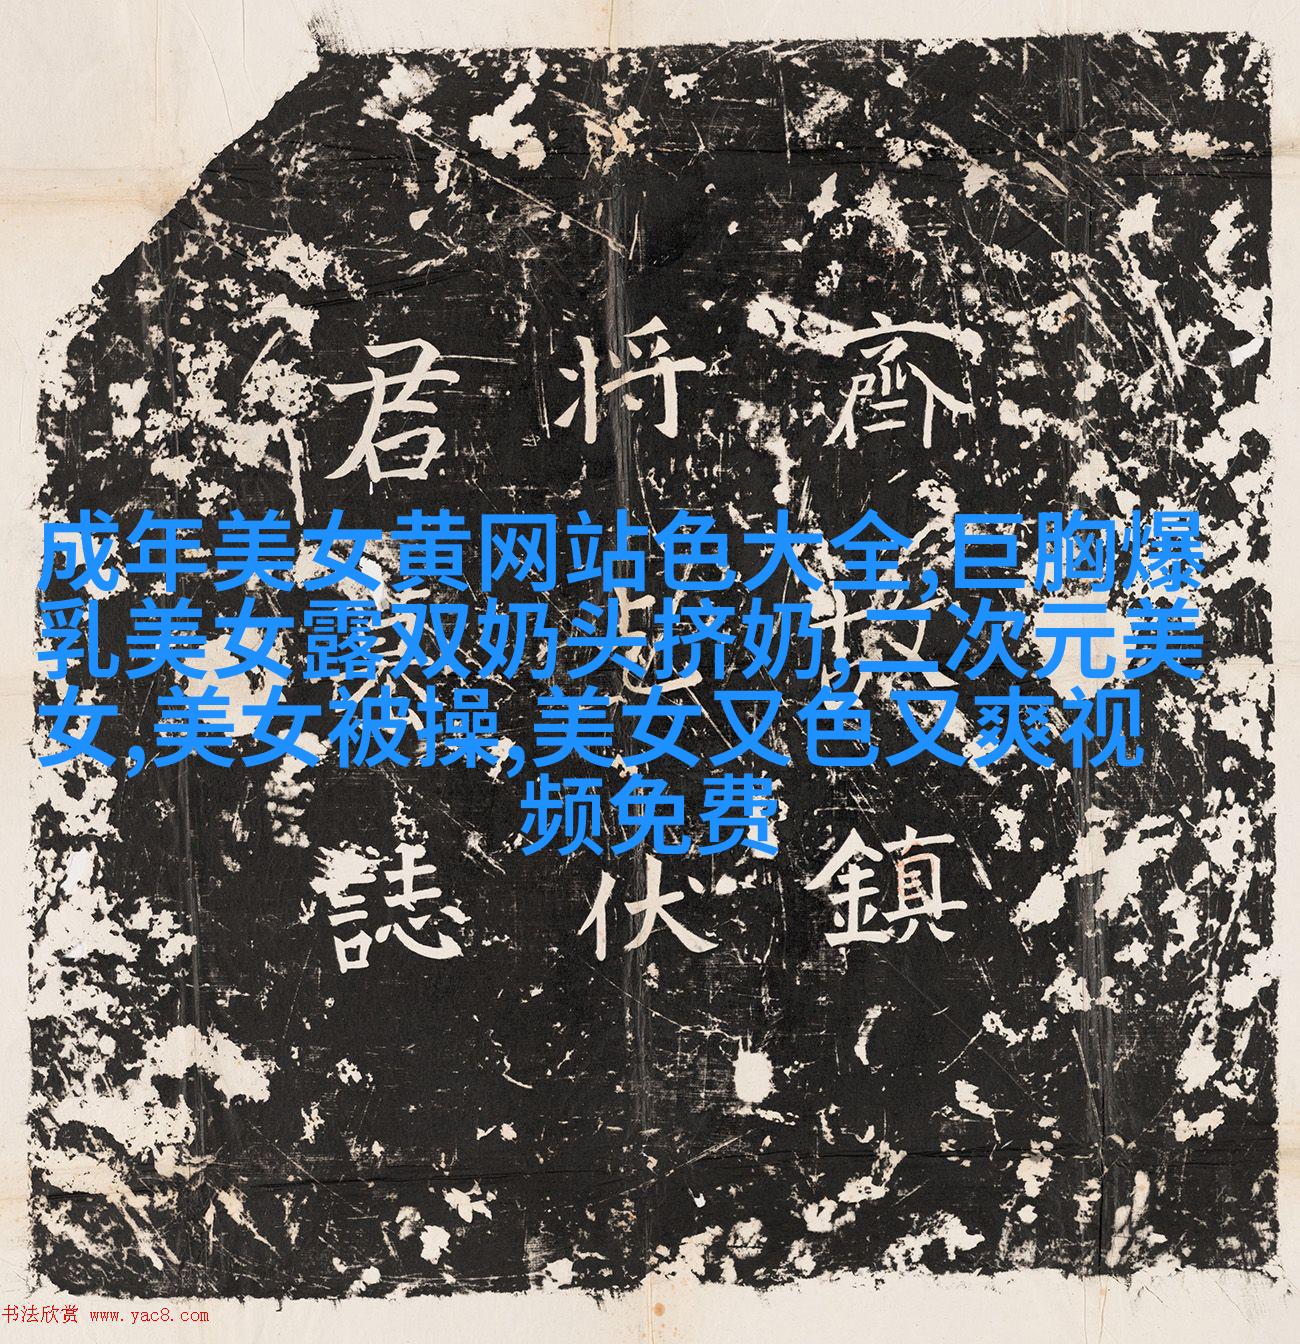 齊鎮
将伏
君誌
成年美女黄网站色大全,巨胸爆
乳美女露双奶头挤奶,二次元美
女,美女被操,美女又色又爽视
频免费
书法欣赏 www.yac8.com